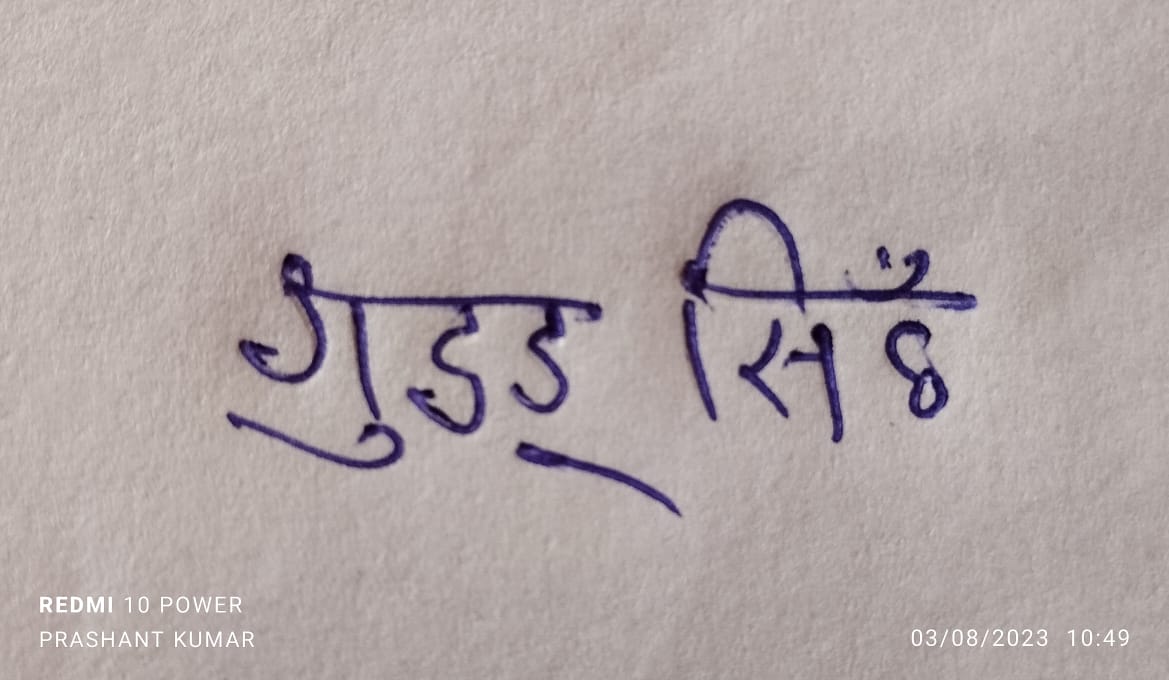 गुडडू सिँह
REDMI 10 POWER
PRASHANT KUMAR
03/08/2023 10:49